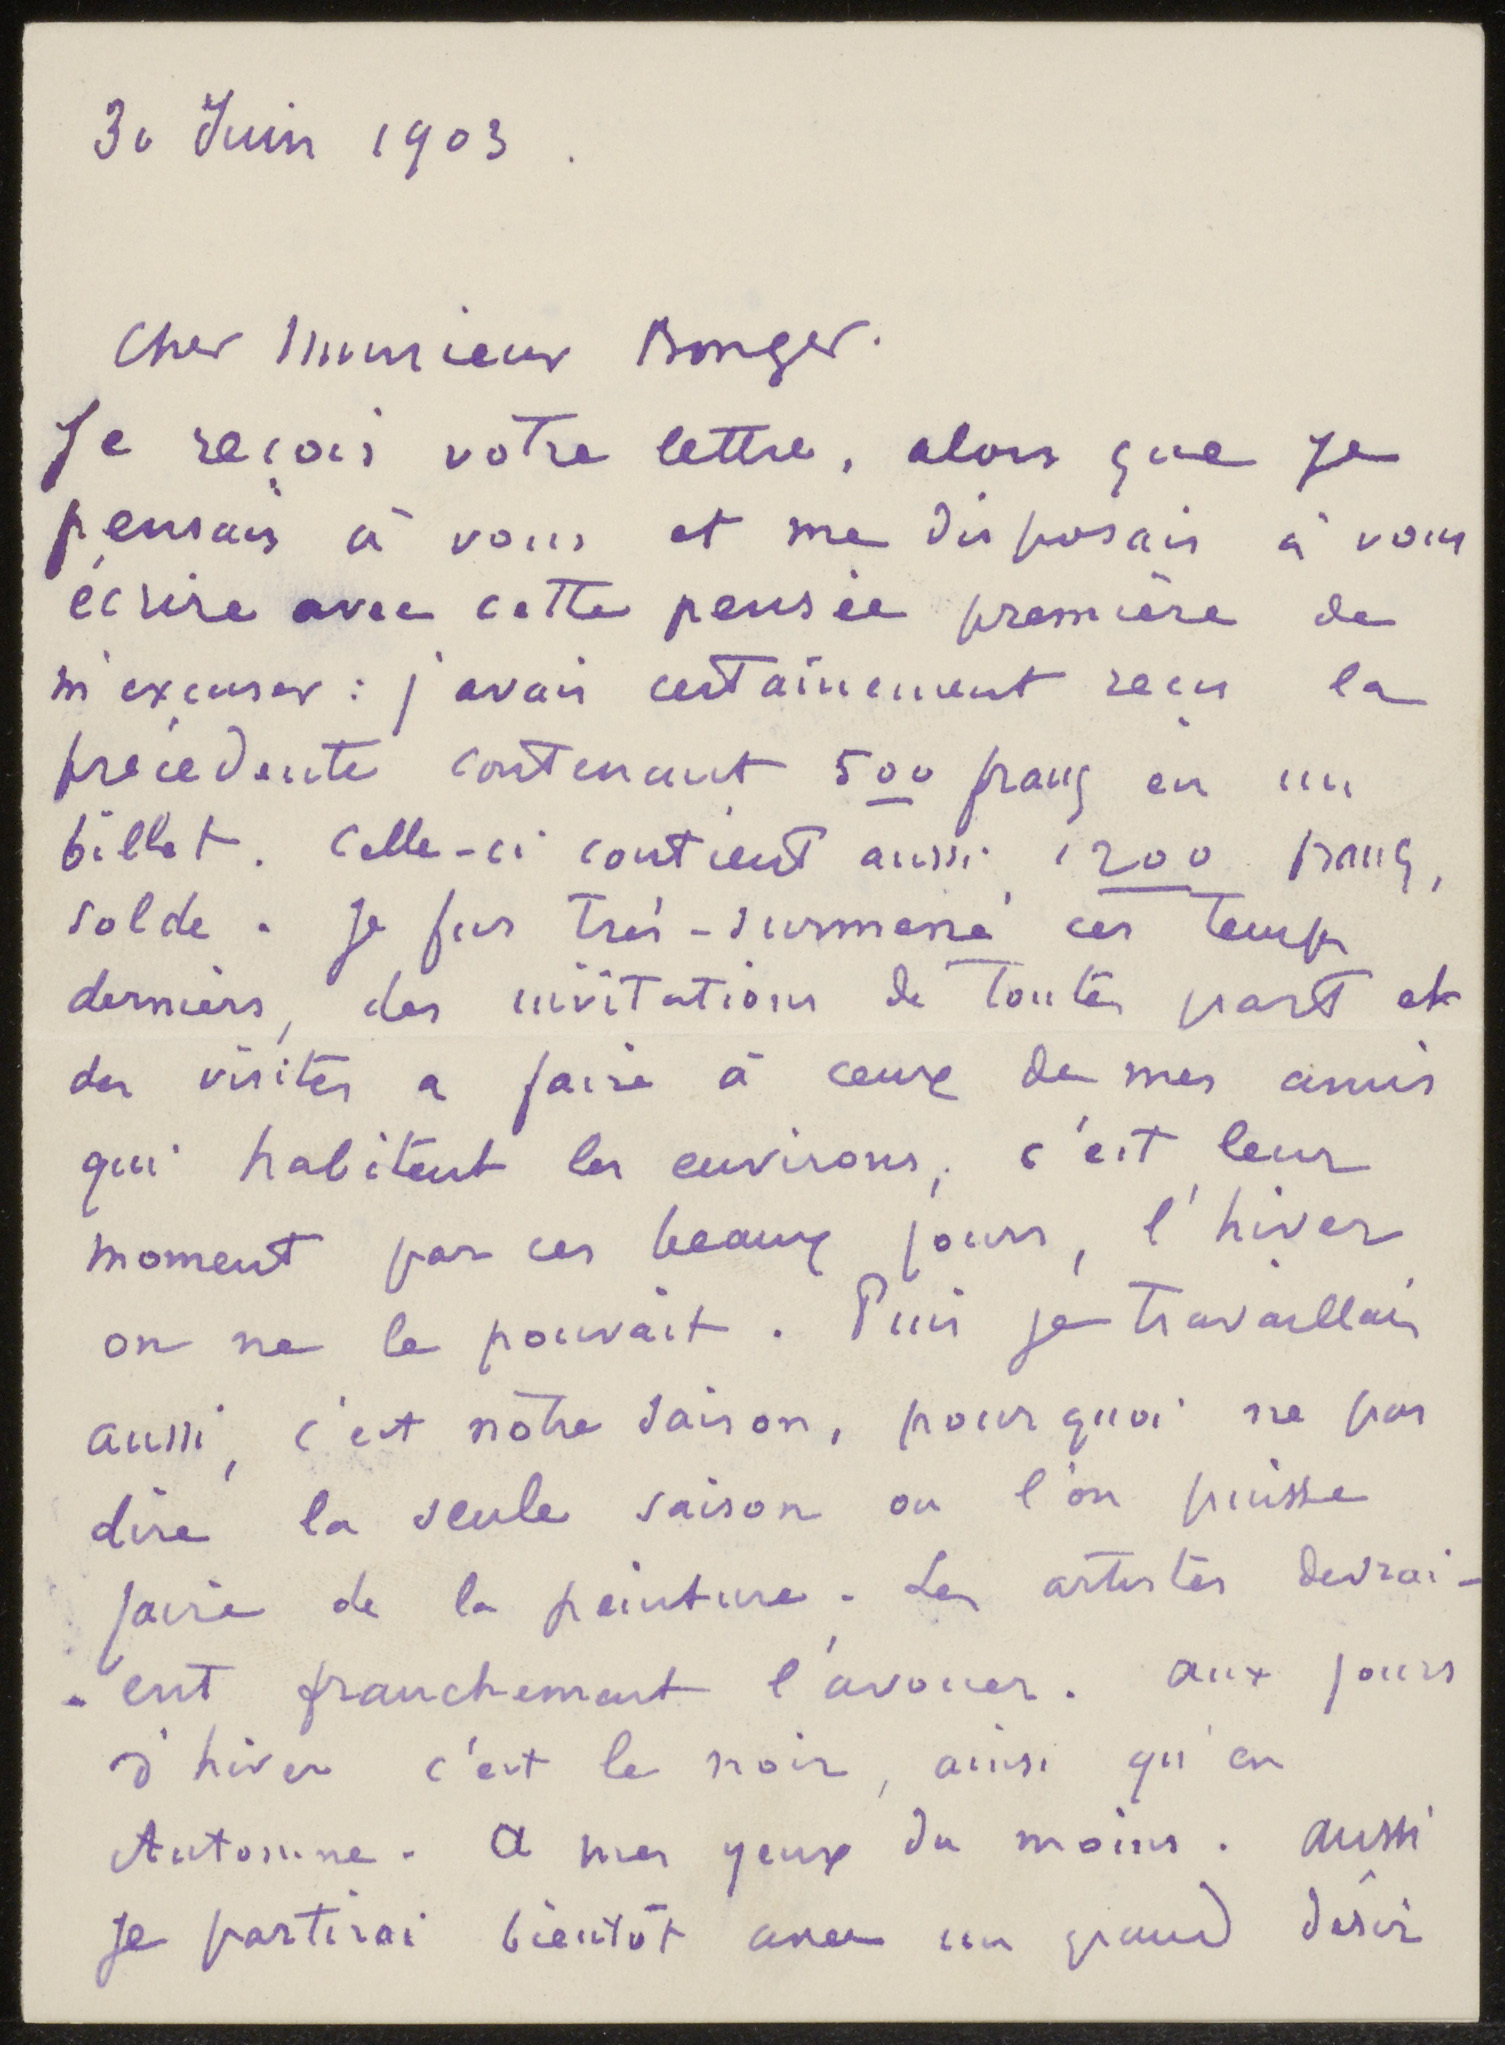 30 Juin 1903.
Cher Monsieur Bonger.
Je reçois votre lettre, alors que je
pensais à vous et me disposais à vous
écrire avec cette pensée première de
m'excuser : j'avais certainement reçu la
précédente contenant 500 francs en un
billet. Celle-ci contient aussi, 1200 francs,
solde. Je fus très-surmené ces temps
derniers, des invitations de toutes part et
des visites a faire à ceux de mes amis
qui habitent les environs, c'est leur
moment par ces beaux jours, l'hiver
on ne le pouvait. Puis je travaillais
aussi, c'est nôtre saison, pourquoi ne pas
dire la seule saison ou l'on puisse
faire de la peinture. Les artistes devrai-
-ent franchement l'avouer. aux jours
d'hiver c'est le noir, ainsi qu'en
Automne. A mes yeux du moins. aussi
je partirai bientôt avec un grand désir